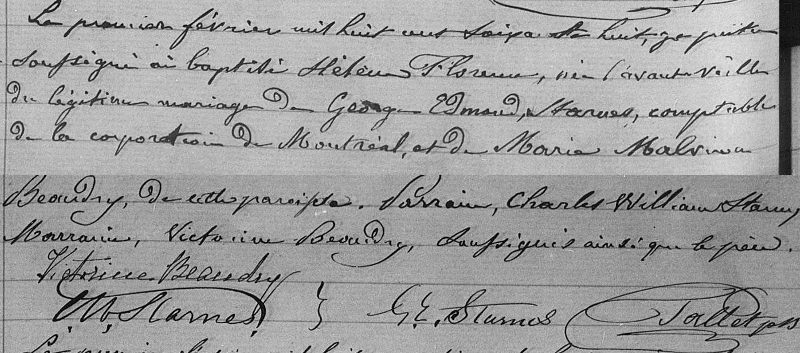 Le premier février mil huit cent soixante huit, je prêtre
soussigné ai baptisé Hélène Florence, née l'avant veille
du légitime mariage de George Edmond Starnes, comptable
de la corporation de Montréal, et de Marie Malvina
Beaudry, de cette paroisse. Parrain, Charles William Starnes,
Marraine, Victorine Beaudry, soussignés ainsi que le père.
Victorine Beaudry
C.W. Starnes } G.E. Starnes